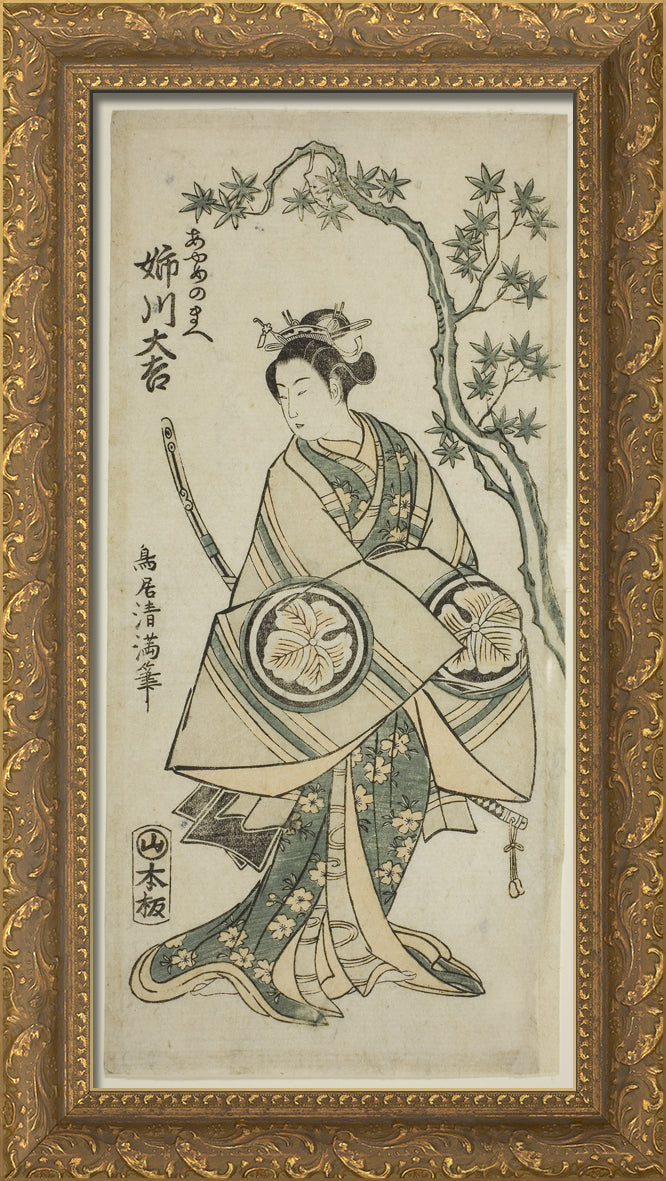 あやめのまへ
姉川大吉
鳥居清満筆
山
本板